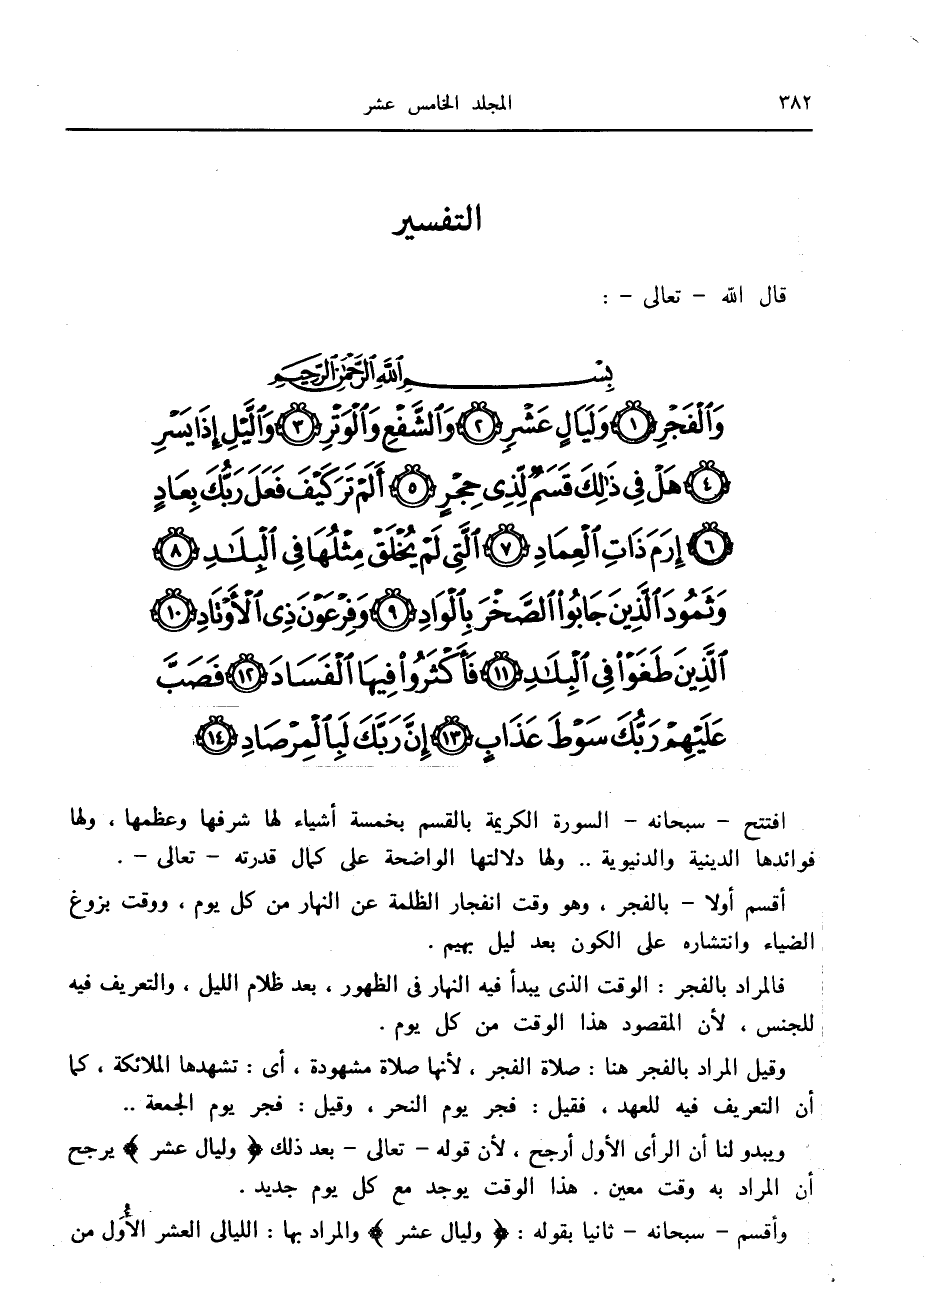 ٣٨٢ المجلد الخامس عشر
التفسير
قال الله – تعالى – :
بِسْمِ اللَّهِ الرَّحْمَٰنِ الرَّحِيمِ
وَالْفَجْرِ ١ وَلَيَالٍ عَشْرٍ ٢ وَالشَّفْعِ وَالْوَتْرِ ٣ وَالَّيْلِ إِذَا يَسْرِ
٤ هَلْ فِي ذَٰلِكَ قَسَمٌ لِّذِي حِجْرٍ ٥ أَلَمْ تَرَ كَيْفَ فَعَلَ رَبُّكَ بِعَادٍ
٦ إِرَمَ ذَاتِ الْعِمَادِ ٧ الَّتِي لَمْ يُخْلَقْ مِثْلُهَا فِي الْبِلَٰدِ ٨
وَثَمُودَ الَّذِينَ جَابُوا الصَّخْرَ بِالْوَادِ ٩ وَفِرْعَوْنَ ذِي الْأَوْتَادِ ١٠
الَّذِينَ طَغَوْا فِي الْبِلَٰدِ ١١ فَأَكْثَرُوا فِيهَا الْفَسَادَ ١٢ فَصَبَّ
عَلَيْهِمْ رَبُّكَ سَوْطَ عَذَابٍ ١٣ إِنَّ رَبَّكَ لَبِالْمِرْصَادِ ١٤
افتتح – سبحانه – السورة الكريمة بالقسم بخمسة أشياء لها شرفها وعظمها ، ولها
فوائدها الدينية والدنيوية .. ولها دلالتها الواضحة على كمال قدرته – تعالى – .
أقسم أولا – بالفجر ، وهو وقت انفجار الظلمة عن النهار من كل يوم ، ووقت بزوغ
الضياء وانتشاره على الكون بعد ليل بهيم .
فالمراد بالفجر : الوقت الذى يبدأ فيه النهار فى الظهور ، بعد ظلام الليل ، والتعريف فيه
للجنس ، لأن المقصود هذا الوقت من كل يوم .
وقيل المراد بالفجر هنا : صلاة الفجر ، لأنها صلاة مشهودة ، أى : تشهدها الملائكة ، كما
أن التعريف فيه للعهد ، فقيل : فجر يوم النحر ، وقيل : فجر يوم الجمعة ..
ويبدو لنا أن الرأى الأول أرجح ، لأن قوله – تعالى – بعد ذلك ﴿ وليال عشر ﴾ يرجح
أن المراد به وقت معين . هذا الوقت يوجد مع كل يوم جديد .
وأقسم – سبحانه – ثانيا بقوله : ﴿ وليال عشر ﴾ والمراد بها : الليالى العشر الأُوَل من